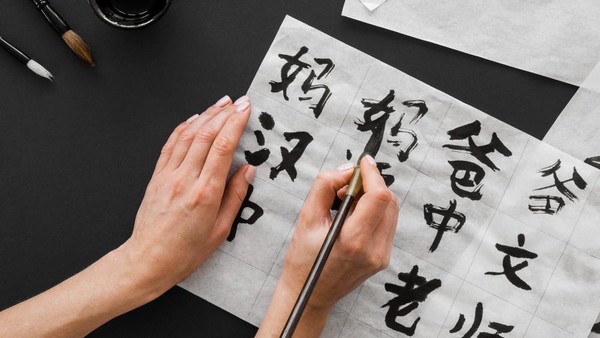 妈妈爸爸
汉 中文
中 老师